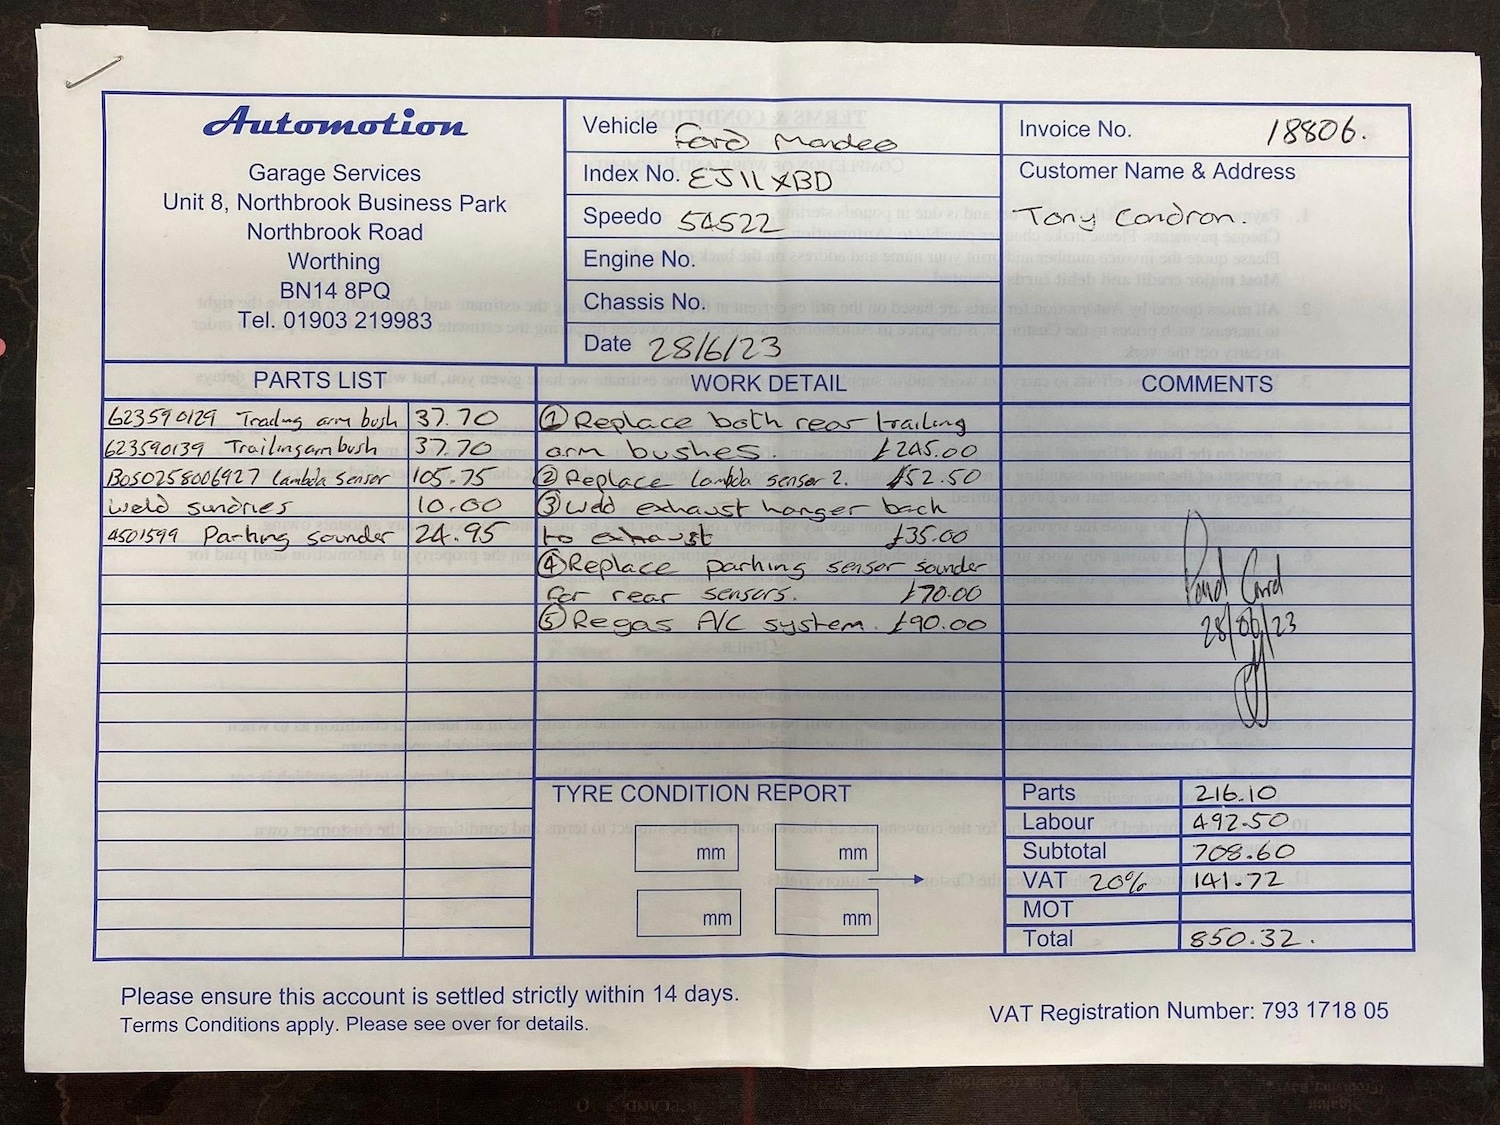 Automotion
Garage Services
Unit 8, Northbrook Business Park
Northbrook Road
Worthing
BN14 8PQ
Tel. 01903 219983
Vehicle Ford Mondeo
Index No. EJ11 XBD
Speedo 54522
Engine No.
Chassis No.
Date 28/6/23
Invoice No. 18806.
Customer Name & Address
Tony Condron.
PARTS LIST
623590129 Trailing arm bush 37.70
623590139 Trailing arm bush 37.70
BOS0258006927 Lambda sensor 105.75
Weld sundries 10.00
4501599 Parking sounder 24.95
WORK DETAIL
① Replace both rear trailing
arm bushes. £245.00
② Replace Lambda sensor 2. £52.50
③ Weld exhaust hanger back
to exhaust £35.00
④ Replace parking sensor sounder
for rear sensors. £70.00
⑤ Regas A/C system. £90.00
COMMENTS
Paid Card
28/06/23
TYRE CONDITION REPORT
mm mm
mm mm
Parts 216.10
Labour 492.50
Subtotal 708.60
VAT 20% 141.72
MOT
Total 850.32.
Please ensure this account is settled strictly within 14 days.
Terms Conditions apply. Please see over for details.
VAT Registration Number: 793 1718 05